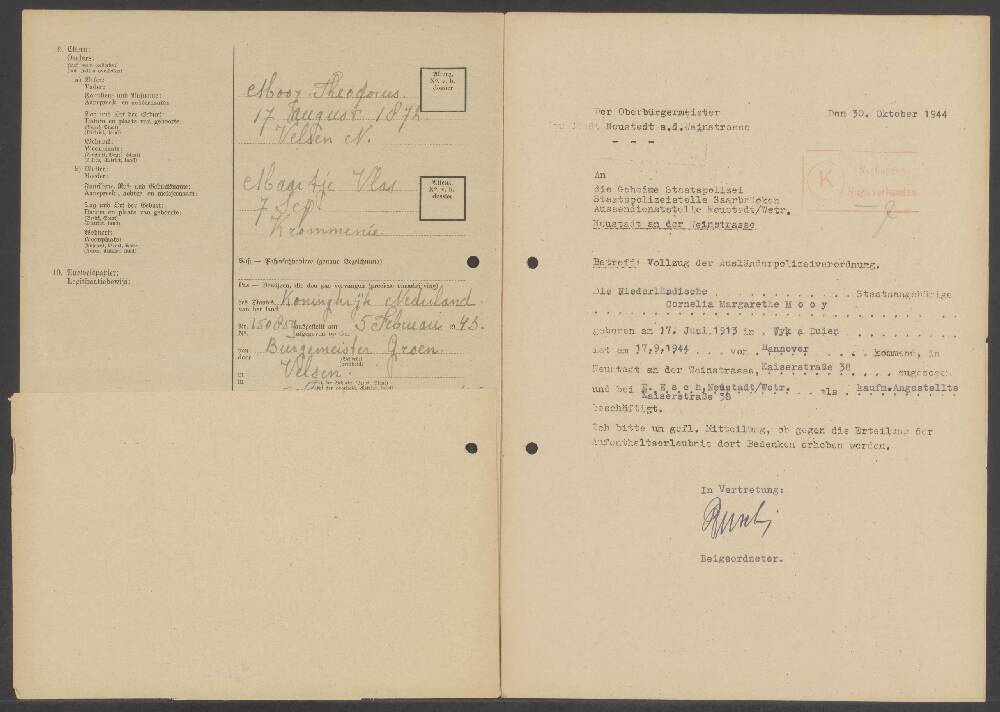 9. Eltern:
Ouders:
a) Vater:
Vader:
Familien- und Rufname:
Tag und Ort der Geburt:
Datum en plaats van geboorte:
Wohnort:
Woonplaats:
b) Mutter:
Moeder:
Tag und Ort der Geburt:
Datum en plaats van geboorte:
Wohnort:
Woonplaats:
10. Ausweispapier:
Legitimatiebewijs:
Mooy Theodorus.
17 Augustus 1872
Velsen N.
dossier
Maartje Vlas
7 Sept
Krommenie
dossier
Paß — Paßersatzpapier (genaue Bezeichnung)
Pas — Bewijzen, die den pas vervangen (precieze omschrijving)
des Staates Koninghrijk Nederland.
van het land
Nr. ausgestellt am 5 Februari 1943.
No.
von Burgemeister Groen
door
in Velsen.
in
Der Oberbürgermeister
Neustadt a.d.Weinstrasse
- - -
Den 30. Oktober 1944
An
die Geheime Staatspolizei
Staatspolizeistelle Saarbrücken
Aussendienststelle Neustadt/Wstr.
Neustadt an der Weinstrasse
K
Betreff: Vollzug der Ausländerpolizeiverordnung.
Die Niederländische . . . . . . . . . . Staatsangehörige
Cornelia Margarethe M o o y
geboren am 17. Juni,1913 in . Wyk a Duien
ist am 17.9,1944 . . . von Hannover . . . . kommend, in
Neustadt an der Weinstrasse, Kaiserstraße 38 . . . . . zugezogen
und bei E. E s c h, Neustadt/Wstr. als kaufm.Angestellte
Kaiserstraße 38
beschäftigt.
Ich bitte um gefl. Mitteilung, ob gegen die Erteilung der
Aufenthaltserlaubnis dort Bedenken erhoben werden.
In Vertretung:
Beigeordneter.